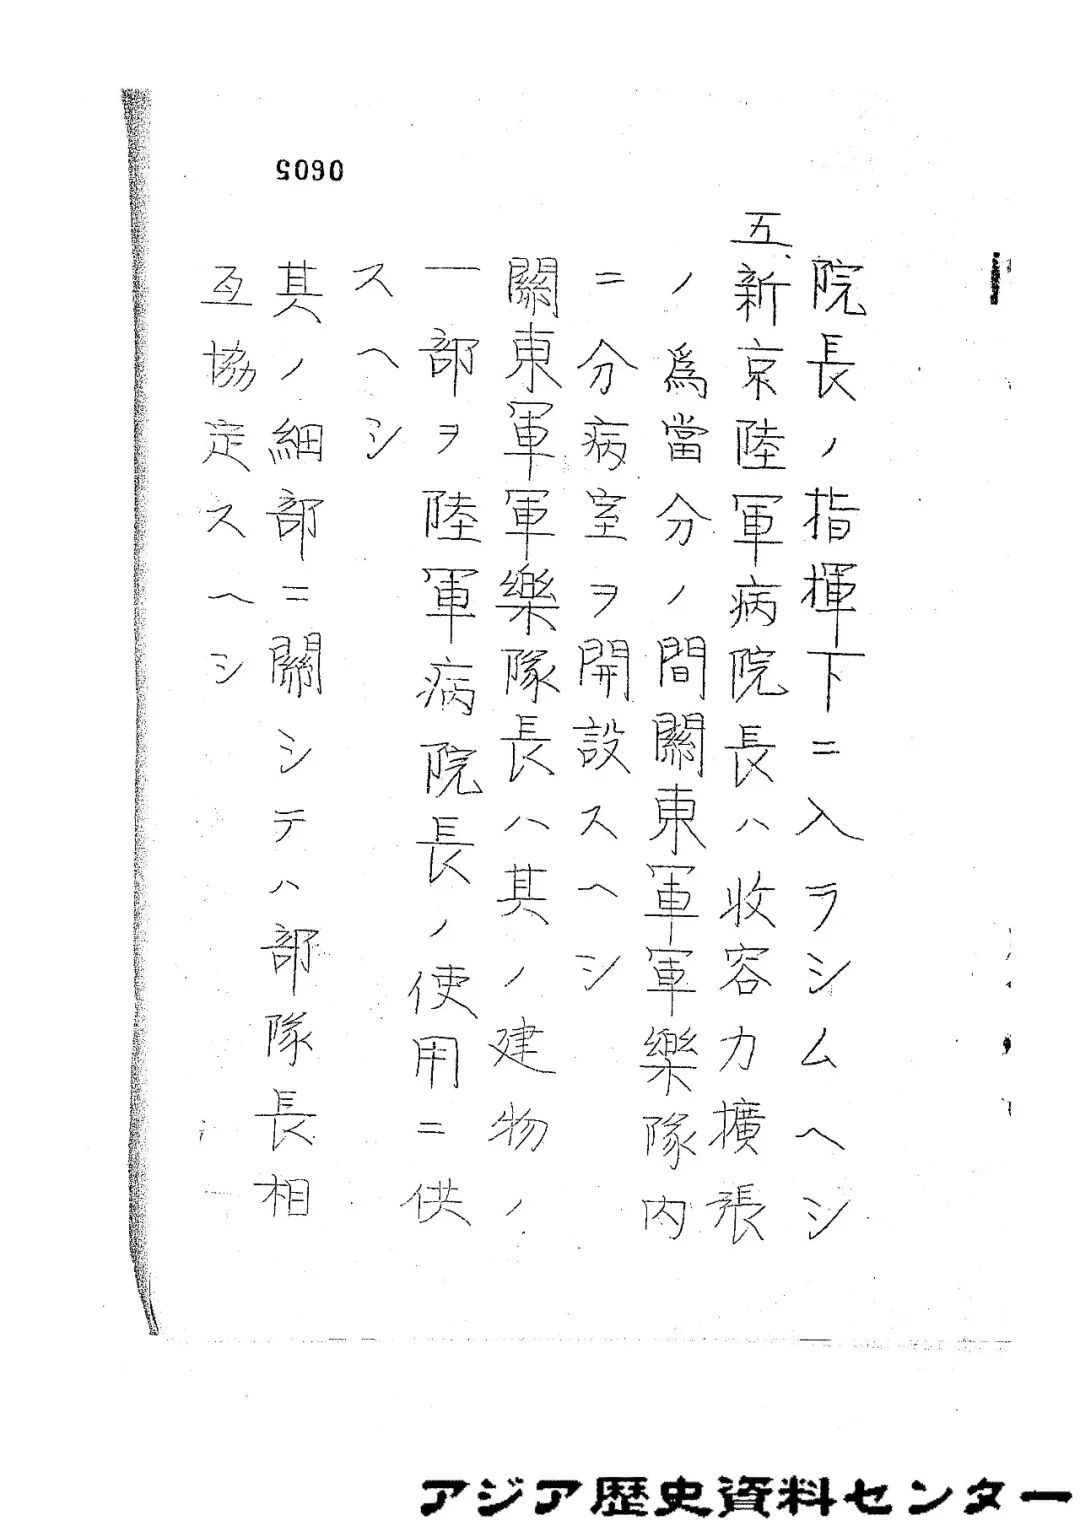 0605
院長ノ指揮下ニ入ラシムヘシ
五、新京陸軍病院長ハ收容力擴張
ノ爲當分ノ間關東軍軍樂隊內
ニ分病室ヲ開設スヘシ
關東軍軍樂隊長ハ其ノ建物ノ
一部ヲ陸軍病院長ノ使用ニ供
スヘシ
其ノ細部ニ關シテハ部隊長相
互協定スヘシ
アジア歴史資料センター